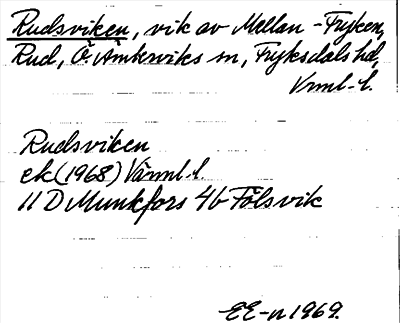 Rudsviken, vik av Mellan-Fryken,
Rud, Ö. Ämterviks sn, Fryksdals hd,
Vrml. l.
Rudsviken
ek (1968) Värml. l.
11 D Munkfors 4b Fölsvik
EE-n 1969.